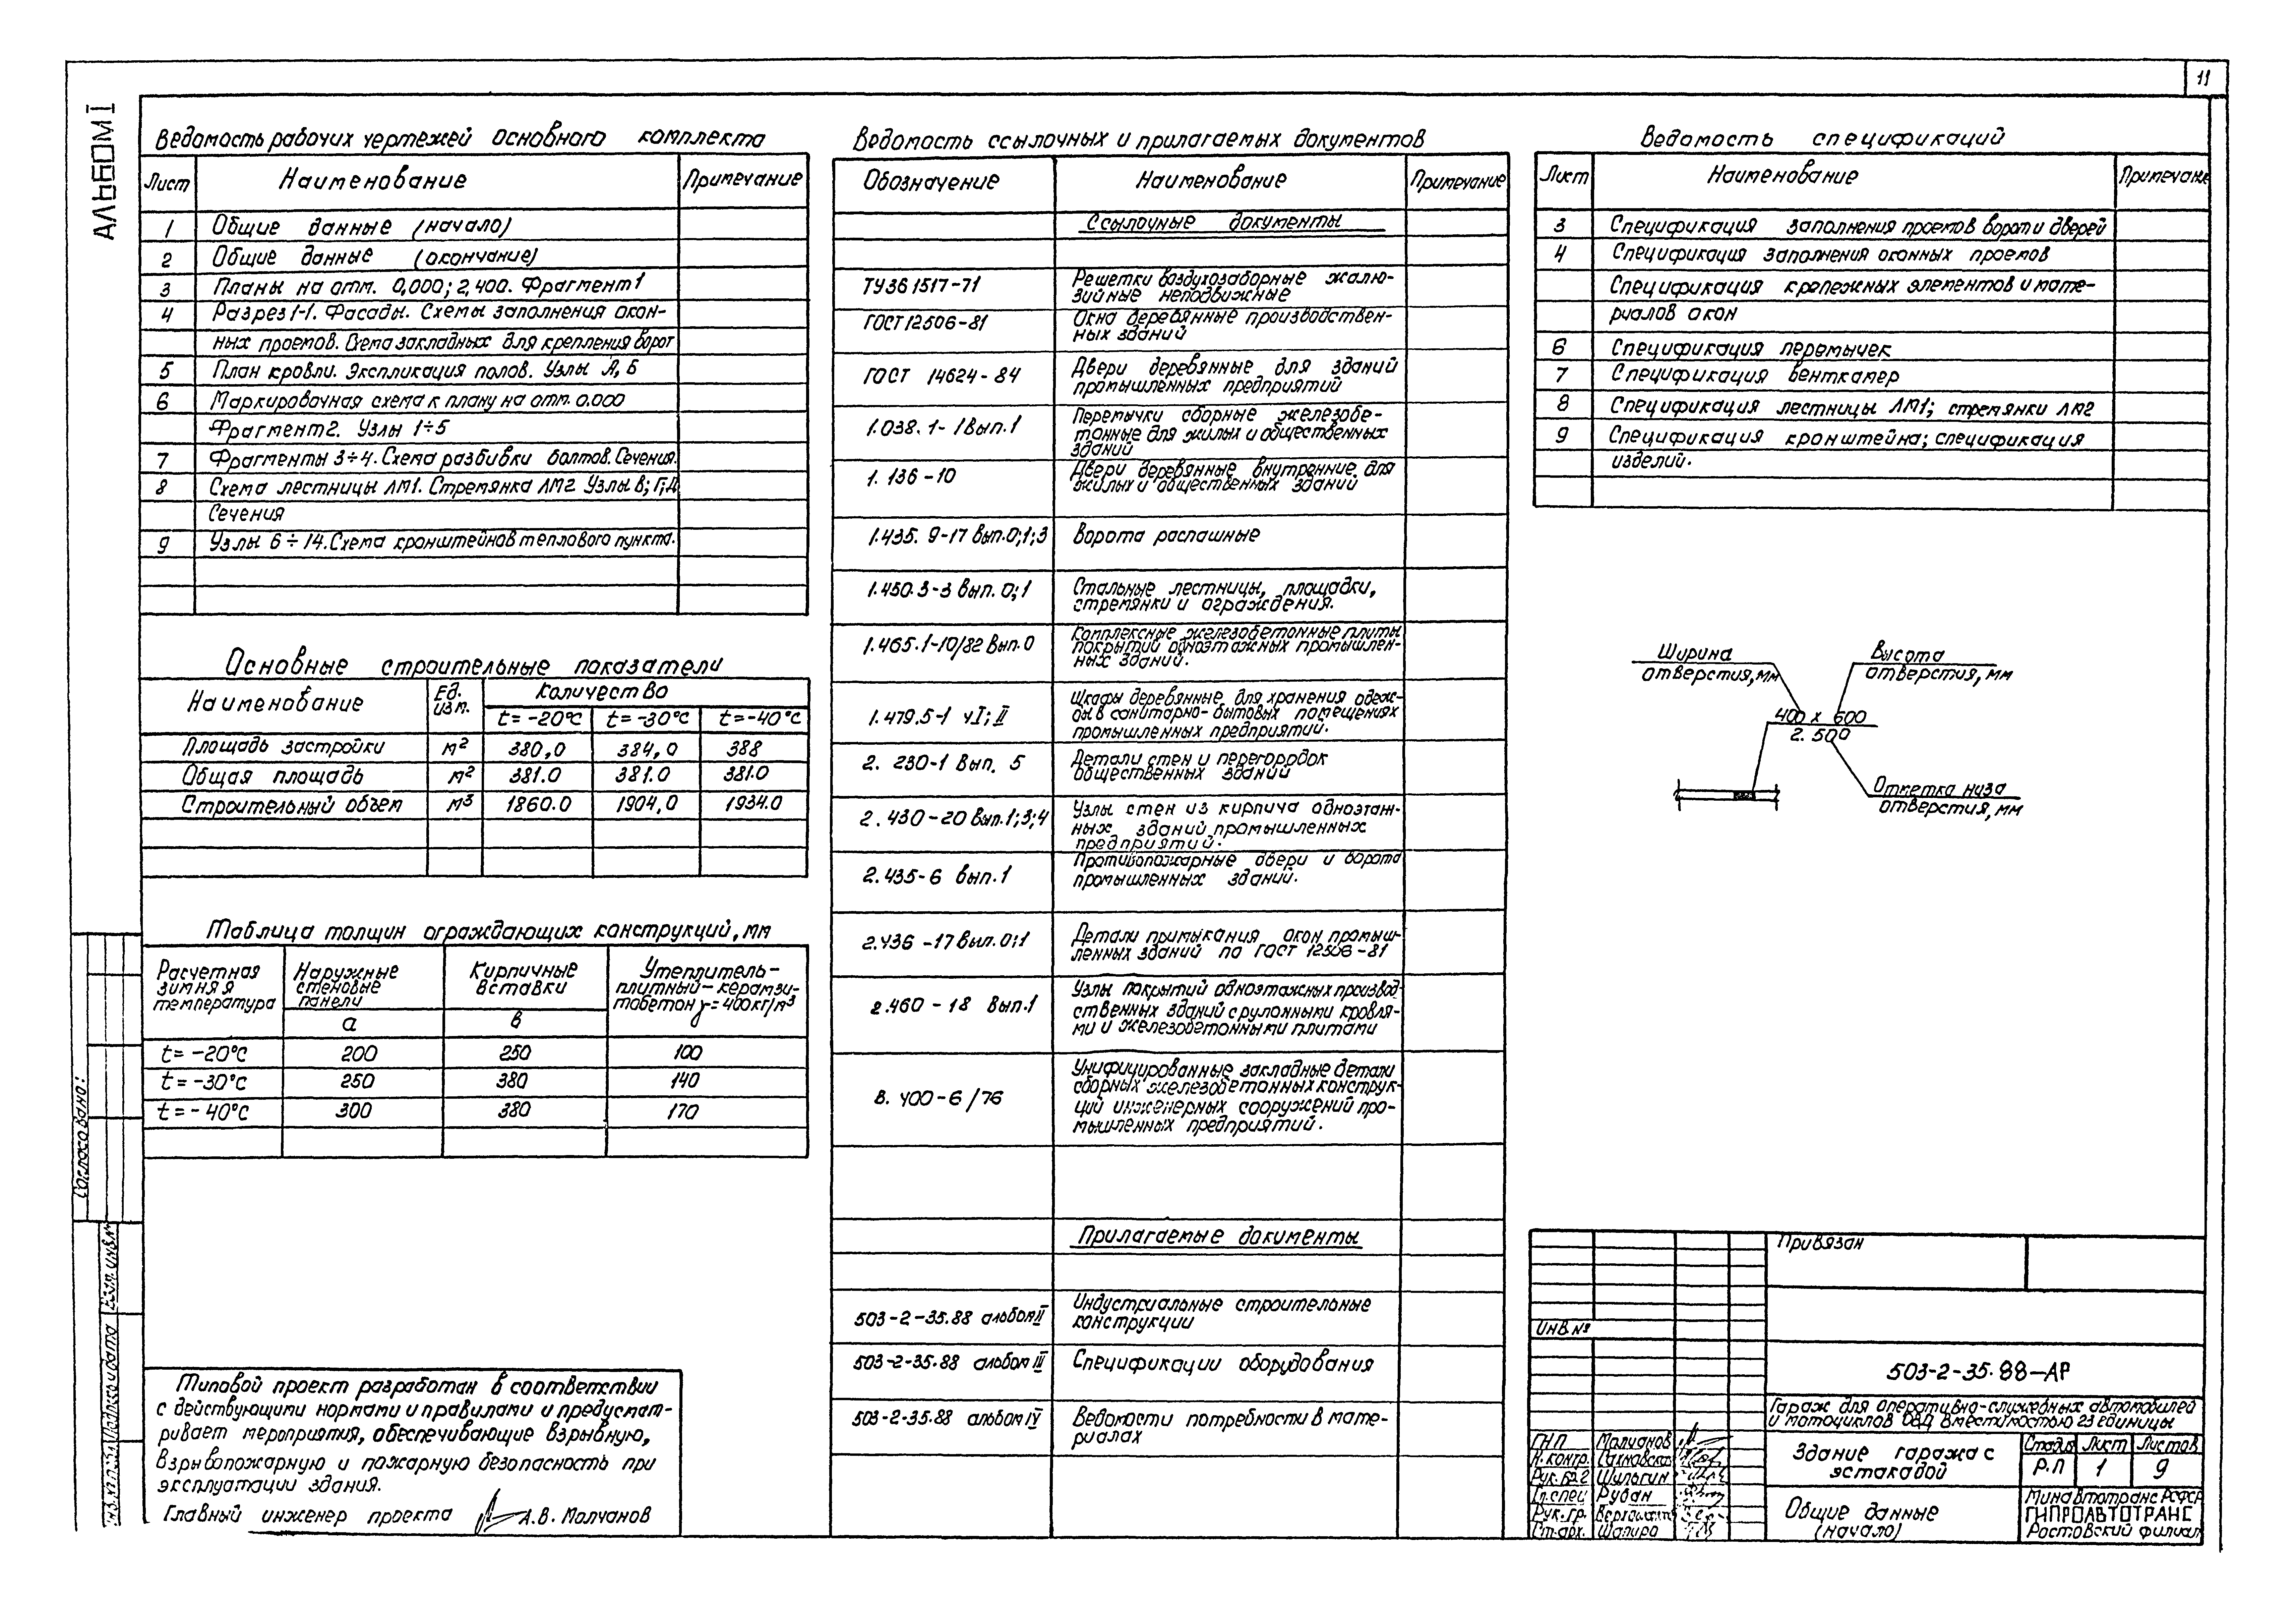 11
АЛЬБОМ I
Ведомость рабочих чертежей основного комплекта
Лист Наименование Примечание
1 Общие данные (начало)
2 Общие данные (окончание)
3 Планы на отм. 0,000; 2,400. Фрагмент 1
4 Разрез 1-1. Фасады. Схемы заполнения окон-
ных проемов. Схема закладных для крепления ворот
5 План кровли. Экспликация полов. Узлы А, Б
6 Маркировочная схема к плану на отм. 0.000
Фрагмент 2. Узлы 1÷5
7 Фрагменты 3÷4. Схема разбивки болтов. Сечения.
8 Схема лестницы ЛМ1. Стремянка ЛМ2 Узлы В; Г; Д
Сечения
9 Узлы 6÷14. Схема кронштейнов теплового пункта.
Основные строительные показатели
Наименование Ед. изм. Количество
t=-20°С t=-30°С t=-40°С
Площадь застройки м² 380,0 384,0 388
Общая площадь м² 381.0 381.0 381.0
Строительный объем м³ 1860.0 1904,0 1934.0
Таблица толщин ограждающих конструкций, мм
Расчетная зимняя температура
Наружные стеновые панели
Кирпичные вставки
Утеплитель- плитный-керамзи- тобетон γ=400кг/м³
а в б
t= -20°С 200 250 100
t= -30°С 250 380 140
t= -40°С 300 380 170
Типовой проект разработан в соответствии
с действующими нормами и правилами и предусмат-
ривает мероприятия, обеспечивающие взрывную,
взрывопожарную и пожарную безопасность при
эксплуатации здания.
Главный инженер проекта А.В. Молчанов
Ведомость ссылочных и прилагаемых документов
Обозначение Наименование Примечание
Ссылочные документы
ТУ36 1517-71 Решетки воздухозаборные жалю-
зийные неподвижные
ГОСТ 12506-81 Окна деревянные производствен-
ных зданий
ГОСТ 14624-84 Двери деревянные для зданий
промышленных предприятий
1.038.1-1 вып.1 Перемычки сборные железобе-
тонные для жилых и общественных
зданий
1.136-10 Двери деревянные внутренние для
жилых и общественных зданий
1.435.9-17 вып.0;1;3 Ворота распашные
1.450.3-3 вып. 0;1 Стальные лестницы, площадки,
стремянки и ограждения.
1.465.1-10/82 вып.0 Комплексные железобетонные плиты
покрытий одноэтажных промышлен-
ных зданий.
1.479.5-1 чI; II Шкафы деревянные для хранения одеж-
ды в санитарно-бытовых помещениях
промышленных предприятий.
2. 230-1 вып. 5 Детали стен и перегородок
общественных зданий
2.430-20 вып.1;3;4 Узлы стен из кирпича одноэтаж-
ных зданий промышленных
предприятий.
2.435-6 вып.1 Противопожарные двери и ворота
промышленных зданий.
2.436-17 вып.0;1 Детали примыкания окон промыш-
ленных зданий по ГОСТ 12506-81
2.460-18 вып.1 Узлы покрытий одноэтажных производ-
ственных зданий с рулонными кровля-
ми и железобетонными плитами
В. 400-6/76 Унифицированные закладные детали
сборных железобетонных конструк-
ций инженерных сооружений про-
мышленных предприятий.
Прилагаемые документы
503-2-35.88 альбом II Индустриальные строительные
конструкции
503-2-35.88 альбом III Спецификации оборудования
503-2-35.88 альбом IV Ведомости потребности в мате-
риалах
Ведомость спецификаций
Лист Наименование Примечание
3 Спецификация заполнения проемов ворот и дверей
4 Спецификация заполнения оконных проемов
Спецификация крепежных элементов и мате-
риалов окон
6 Спецификация перемычек
7 Спецификация венткамер
8 Спецификация лестницы ЛМ1; стремянки ЛМ2
9 Спецификация кронштейна; спецификация
изделий.
Ширина
отверстия, мм
Высота
отверстия, мм
400 х 600
2.500
Отметка низа
отверстия, мм
Привязан
Инв.№
503-2-35.88-АР
Гараж для оперативно-служебных автомобилей
и мотоциклов ОВД вместимостью 23 единицы
ГИП Молчанов
Н.контр. Сахновская
Рук.бр.2 Шульгин
Гл.спец Рудан
Рук.гр.
Ст.арх. Шапиро
Здание гаража с
эстакадой
Стадия Лист Листов
Р.П 1 9
Общие данные
(начало)
Минавтотранс РСФСР
ГИПРОАВТОТРАНС
Ростовский филиал
Согласовано:
Взам. инв.№
Подпись и дата
Инв.№ подл.